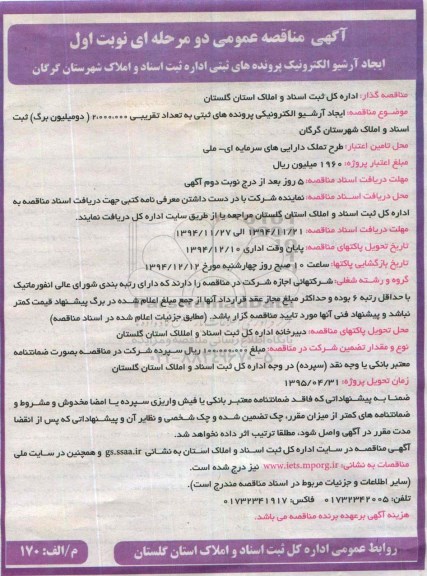 آگهی مناقصه عمومی دو مرحله ای نوبت اول
ایجاد آرشیو الکترونیک پرونده های ثبتی اداره ثبت اسناد و املاک شهرستان گرگان
مناقصه گذار: اداره کل ثبت اسناد و املاک استان گلستان
موضوع مناقصه: ایجاد آرشیو الکترونیکی پرونده های ثبتی به تعداد تقریبی ۲،۰۰۰،۰۰۰ ( دومیلیون برگ) ثبت
اسناد و املاک شهرستان گرگان
محل تامین اعتبار: طرح تملک دارایی های سرمایه ای- ملی
مبلغ اعتبار پروژه: ۱۹۶۰ میلیون ریال
مهلت دریافت اسناد مناقصه: ۵ روز بعد از درج نوبت دوم آگهی
محل دریافت اسناد مناقصه: نماینده شرکت با در دست داشتن معرفی نامه کتبی جهت دریافت اسناد مناقصه به
اداره کل ثبت اسناد و املاک استان گلستان مراجعه یا از طریق سایت اداره کل دریافت نمایند.
مهلت دریافت اسناد مناقصه: ۱۳۹۴/۱۱/۲۱ الی ۱۳۹۴/۱۱/۲۷
تاریخ تحویل پاکتهای مناقصه: پایان وقت اداری ۱۳۹۴/۱۲/۱۰
تاریخ بازگشایی پاکتها: ساعت ۱۰ صبح روز چهارشنبه مورخ ۱۳۹۴/۱۲/۱۲
گروه و رشته شغلی: شرکتهائی اجازه شرکت در مناقصه را دارند که دارای رتبه بندی شورای عالی انفورماتیک
با حداقل رتبه ۶ بوده و حداکثر مبلغ مجاز عقد قرارداد آنها از جمع مبلغ اعلام شده در برگ پیشنهاد قیمت کمتر
نباشد و پیشنهاد فنی آنها مورد تایید مناقصه گزار باشد. (مطابق جزئیات اعلام شده در اسناد مناقصه)
محل تحویل پاکتهای مناقصه: دبیرخانه اداره کل ثبت اسناد و املاک استان گلستان
نوع و مقدار تضمین شرکت در مناقصه: مبلغ ریال سپرده شرکت در مناقصه بصورت ضمانتنامه
معتبر بانکی یا وجه نقد (سپرده) در وجه اداره کل ثبت اسناد و املاک استان گلستان
زمان تحویل پروژه: ۱۳۹۵/۰۴/۳۱
ضمنا به پیشنهاداتی که فاقد ضمانتنامه معتبر بانکی یا فیش واریزی سپرده یا امضا مخدوش و مشروط و
ضمانتنامه های کمتر از میزان مقرر، چک تضمین شده و چک شخصی و نظایر آن و پیشنهاداتی که پس از انقضا
مدت مقرر در آگهی واصل شود، مطلقا ترتیب اثر داده نخواهد شد.
آگهی مناقصه در سایت اداره کل ثبت اسناد و املاک استان به نشانی gs.ssaa.ir و همچنین در سایت ملی
مناقصات به نشانی: www.iets.mporg.ir نیز درج شده است.
(سایر اطلاعات و جزئیات مربوط در اسناد مناقصه مندرج است).
تلفن: ۰۱۷۳۲۳۴۲۰۰۵ فاکس: ۰۱۷۳۲۳۴۱۹۱۷
هزینه آگهی برعهده برنده مناقصه می باشد.
روابط عمومی اداره کل ثبت اسناد و املاک استان گلستان
م/الف: ۱۷۰